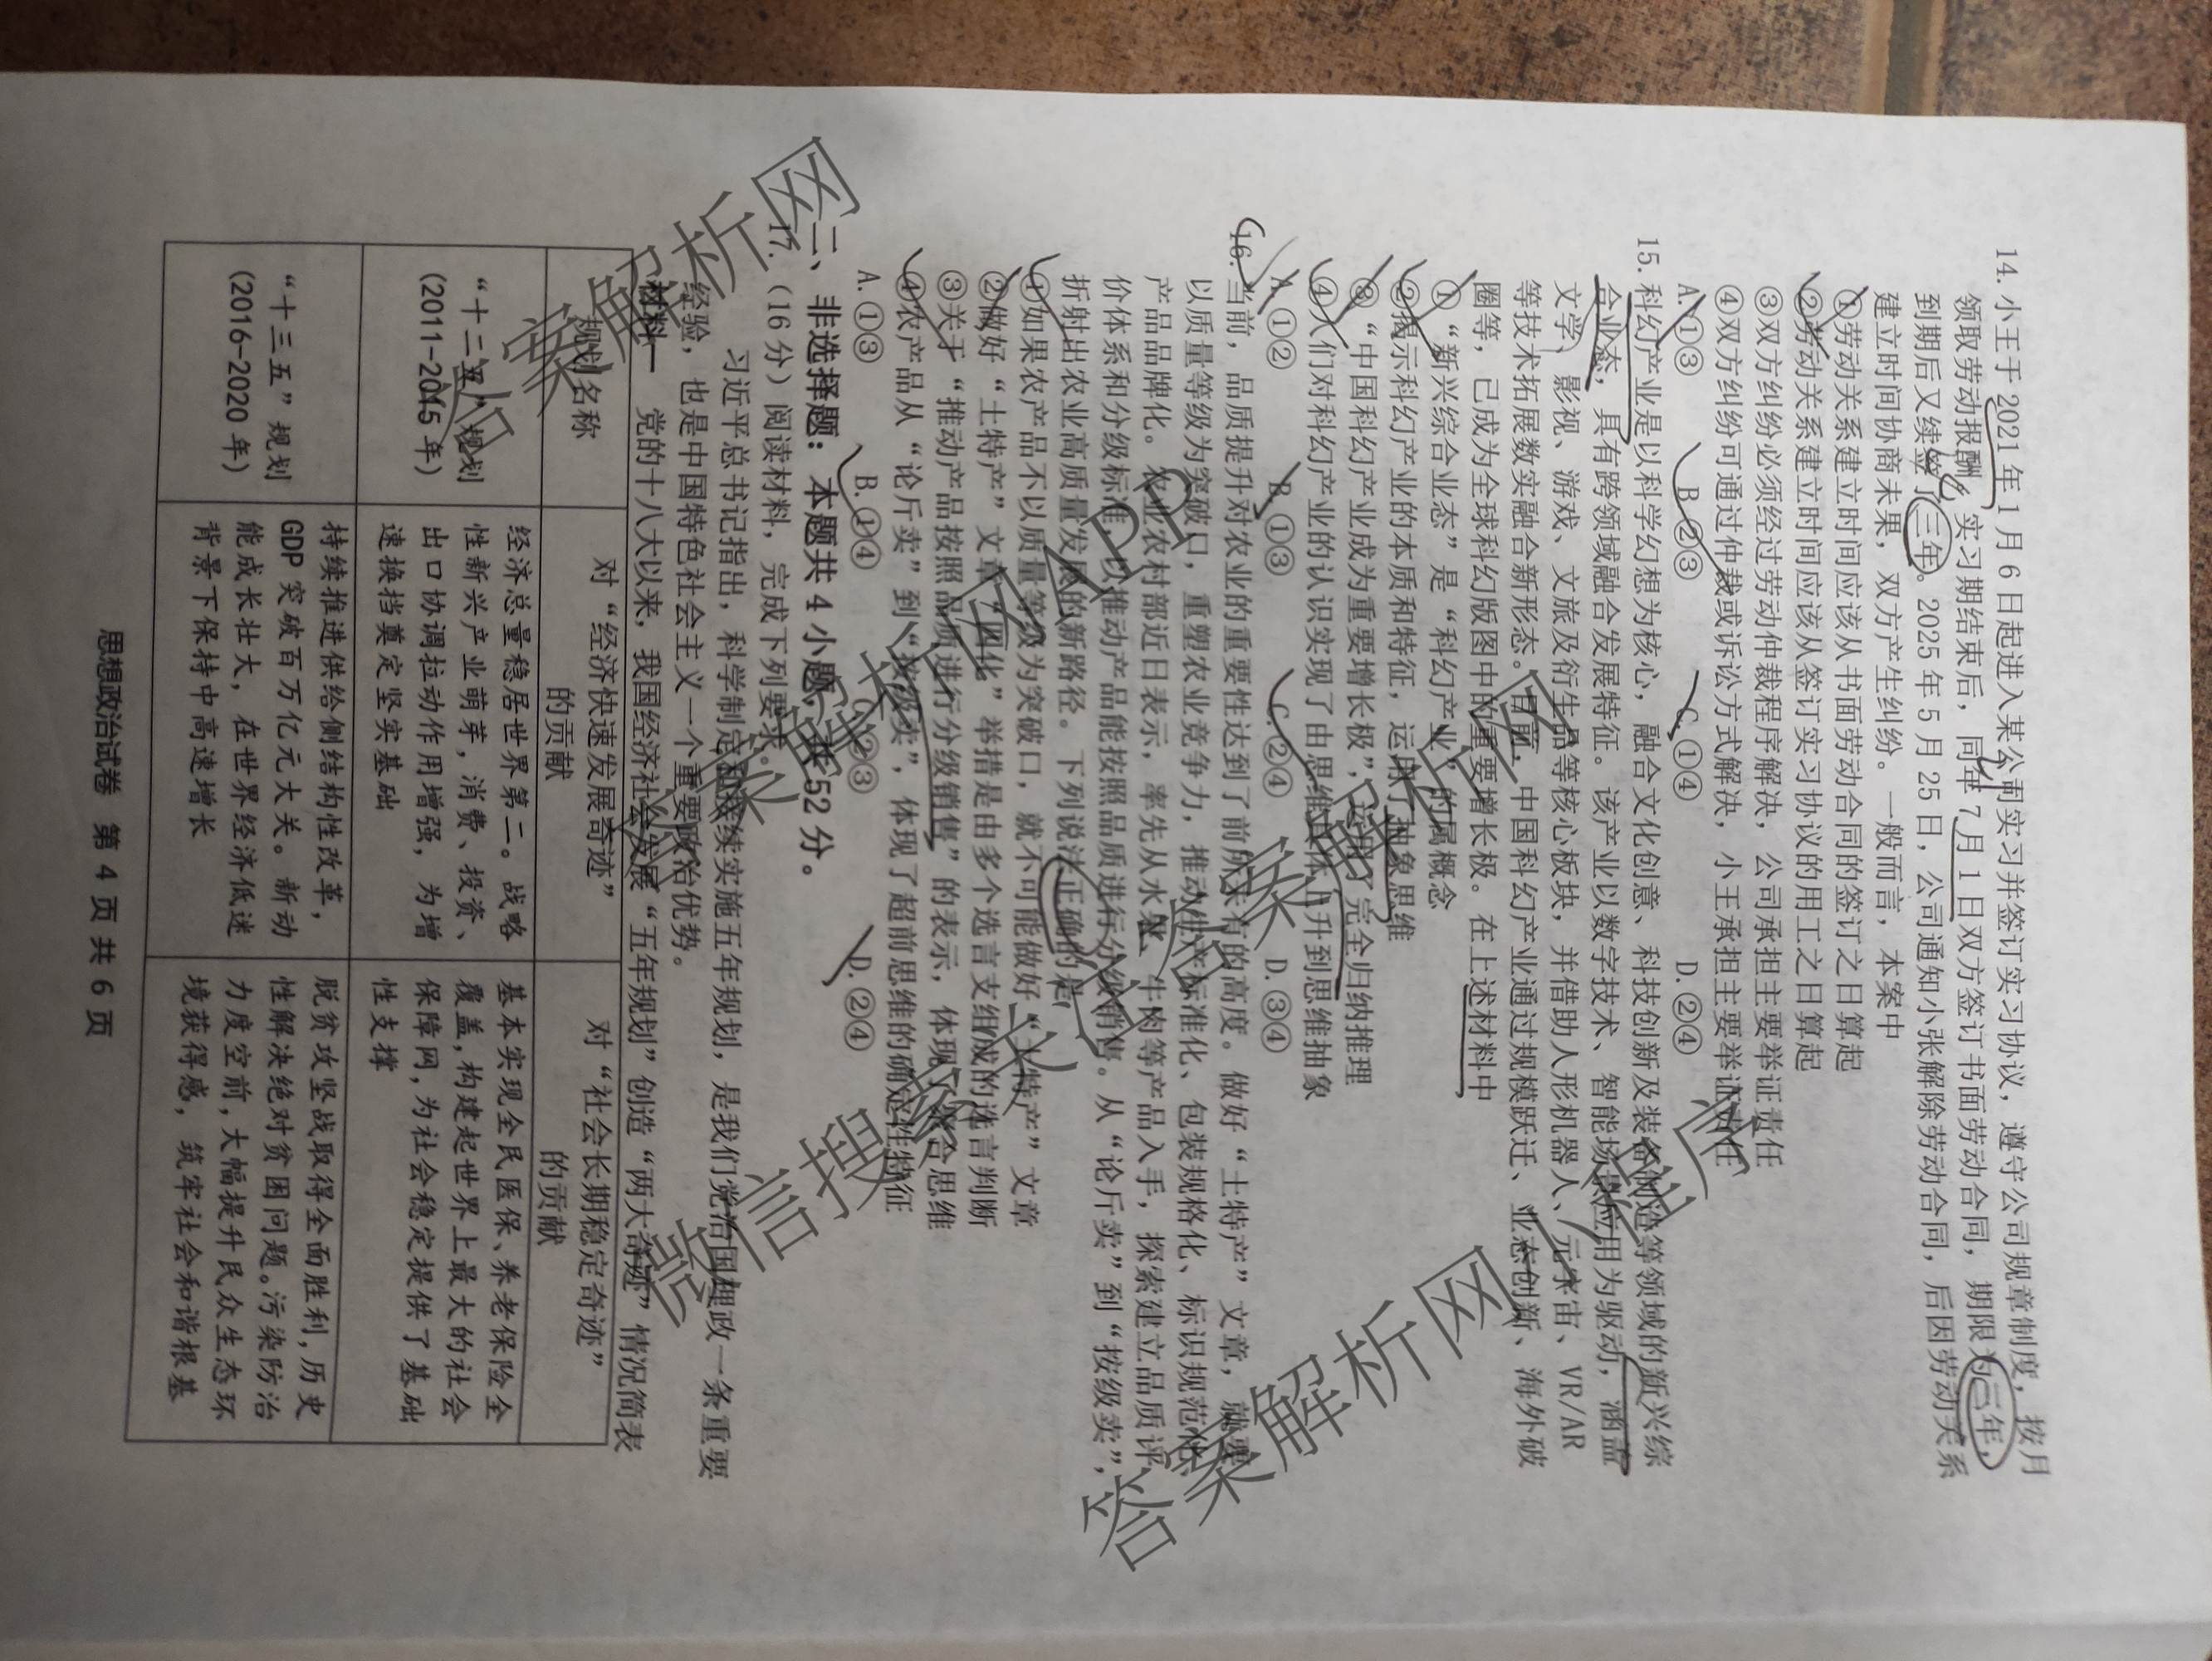 14. 小王于 2021年 1 月 6 日起进入某公司实习并签订实习协议，遵守公司规章制度，按月
领取劳动报酬。实习期结束后，同年 7 月 1 日双方签订书面劳动合同，期限为三年，
到期后又续签了三年。2025 年 5 月 25 日，公司通知小张解除劳动合同，后因劳动关系
建立时间协商未果，双方产生纠纷。一般而言，本案中
①劳动关系建立时间应该从书面劳动合同的签订之日算起
②劳动关系建立时间应该从签订实习协议的用工之日算起
③双方纠纷必须经过劳动仲裁程序解决，公司承担主要举证责任
④双方纠纷可通过仲裁或诉讼方式解决，小王承担主要举证责任
A. ①③ B. ②③ C. ①④ D. ②④
15. 科幻产业是以科学幻想为核心，融合文化创意、科技创新及装备制造等领域的新兴综
合业态，具有跨领域融合发展特征。该产业以数字技术、智能场景应用为驱动，涵盖
文学、影视、游戏、文旅及衍生品等核心板块，并借助人形机器人、元宇宙、VR/AR
等技术拓展数实融合新形态。目前，中国科幻产业通过规模跃迁、业态创新、海外破
圈等，已成为全球科幻版图中的重要增长极。在上述材料中
①“新兴综合业态”是“科幻产业”的属概念
②揭示科幻产业的本质和特征，运用了抽象思维
③“中国科幻产业成为重要增长极”，运用了完全归纳推理
④人们对科幻产业的认识实现了由思维具体上升到思维抽象
A. ①② B. ①③ C. ②④ D. ③④
16. 当前，品质提升对农业的重要性达到了前所未有的高度。做好“土特产”文章，就要
以质量等级为突破口，重塑农业竞争力，推动生产标准化、包装规格化、标识规范化、
产品品牌化。农业农村部近日表示，率先从水果、牛肉等产品入手，探索建立品质评
价体系和分级标准，以推动产品能按照品质进行分级销售。从“论斤卖”到“按级卖”，
折射出农业高质量发展的新路径。下列说法正确的是
①如果农产品不以质量等级为突破口，就不可能做好“土特产”文章
②做好“土特产”文章“四化”举措是由多个选言支组成的选言判断
③关于“推动产品按照品质进行分级销售”的表示，体现了聚合思维
④农产品从“论斤卖”到“按级卖”，体现了超前思维的确定性特征
A. ①③ B. ①④ C. ②③ D. ②④
二、非选择题：本题共 4 小题，共 52 分。
17. （16 分）阅读材料，完成下列要求。
习近平总书记指出，科学制定和接续实施五年规划，是我们党治国理政一条重要
经验，也是中国特色社会主义一个重要政治优势。
材料一 党的十八大以来，我国经济社会发展“五年规划”创造“两大奇迹”情况简表
规划名称
对“经济快速发展奇迹”
的贡献
对“社会长期稳定奇迹”
的贡献
“十二五”规划
（2011-2015 年）
经济总量稳居世界第二。战略
性新兴产业萌芽，消费、投资、
出口协调拉动作用增强，为增
速换挡奠定坚实基础
基本实现全民医保、养老保险全
覆盖，构建起世界上最大的社会
保障网，为社会稳定提供了基础
性支撑
“十三五”规划
（2016-2020 年）
持续推进供给侧结构性改革，
GDP 突破百万亿元大关。新动
能成长壮大，在世界经济低迷
背景下保持中高速增长
脱贫攻坚战取得全面胜利，历史
性解决绝对贫困问题。污染防治
力度空前，大幅提升民众生态环
境获得感，筑牢社会和谐根基
思想政治试卷 第 4 页 共 6 页